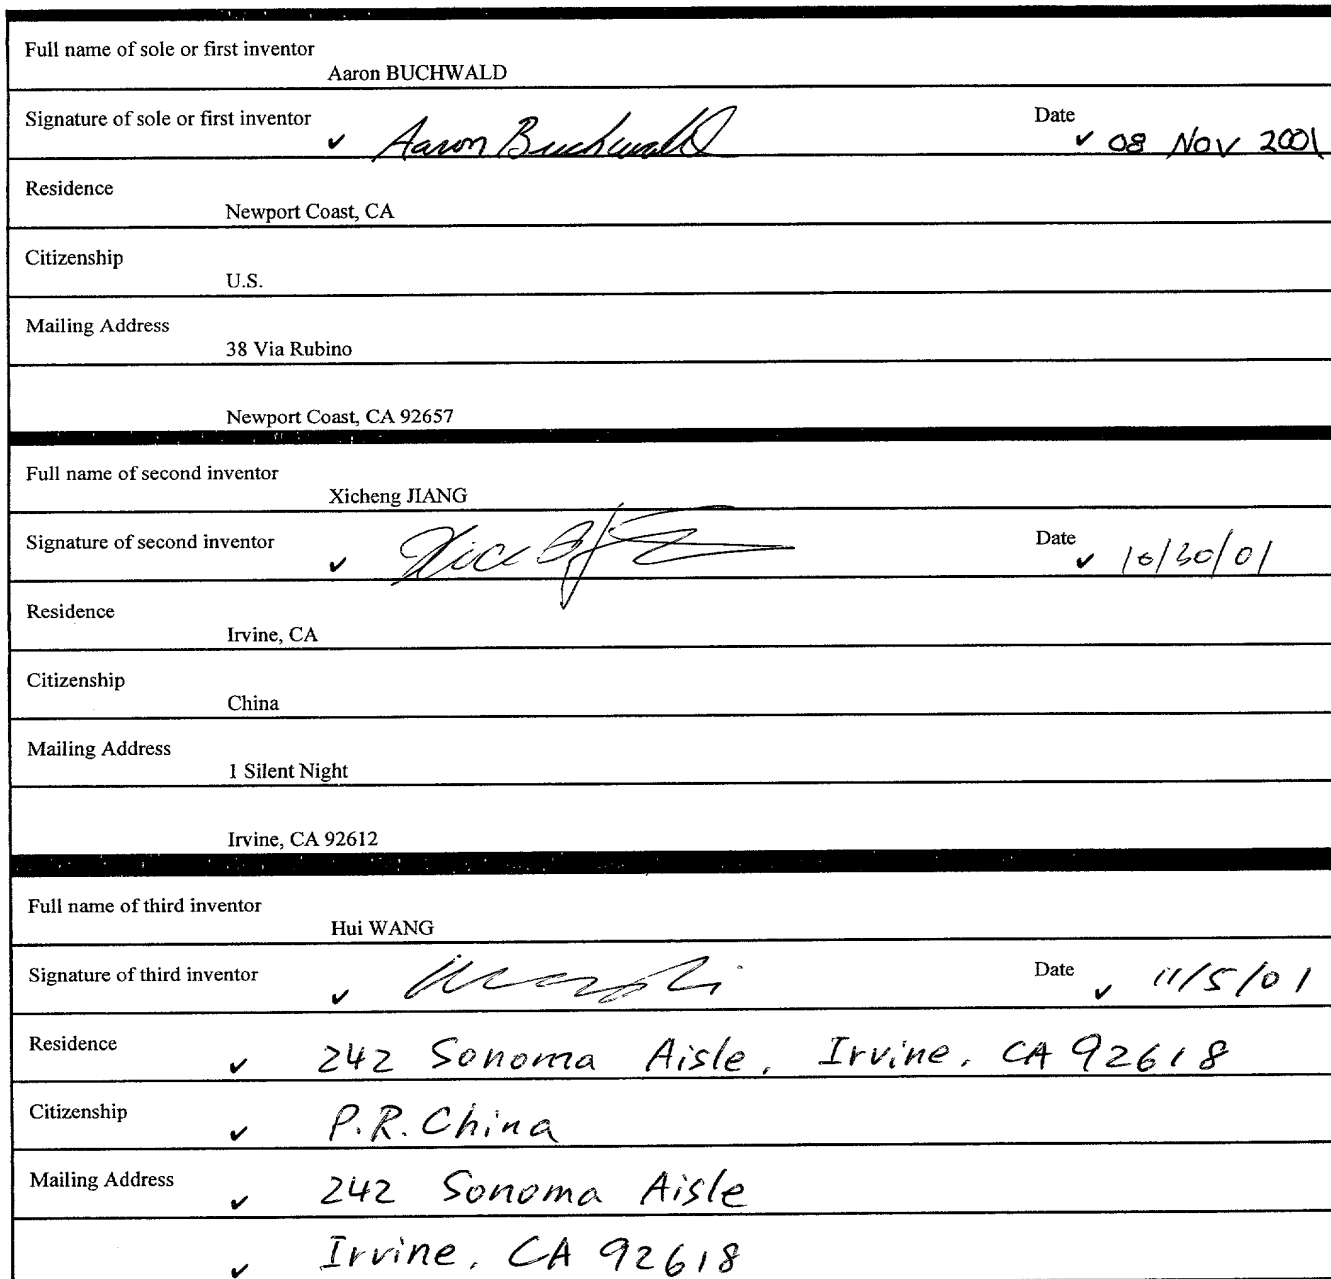 Full name of sole or first inventor
Aaron BUCHWALD
Signature of sole or first inventor ✓ Aaron Buchwald Date ✓ 08 Nov 2001
Residence
Newport Coast, CA
Citizenship
U.S.
Mailing Address
38 Via Rubino
Newport Coast, CA 92657
Full name of second inventor
Xicheng JIANG
Signature of second inventor ✓ Date ✓ 10/30/01
Residence
Irvine, CA
Citizenship
China
Mailing Address
1 Silent Night
Irvine, CA 92612
Full name of third inventor
Hui WANG
Signature of third inventor ✓ Date ✓ 11/5/01
Residence ✓ 242 Sonoma Aisle, Irvine, CA 92618
Citizenship ✓ P.R. China
Mailing Address ✓ 242 Sonoma Aisle
✓ Irvine, CA 92618